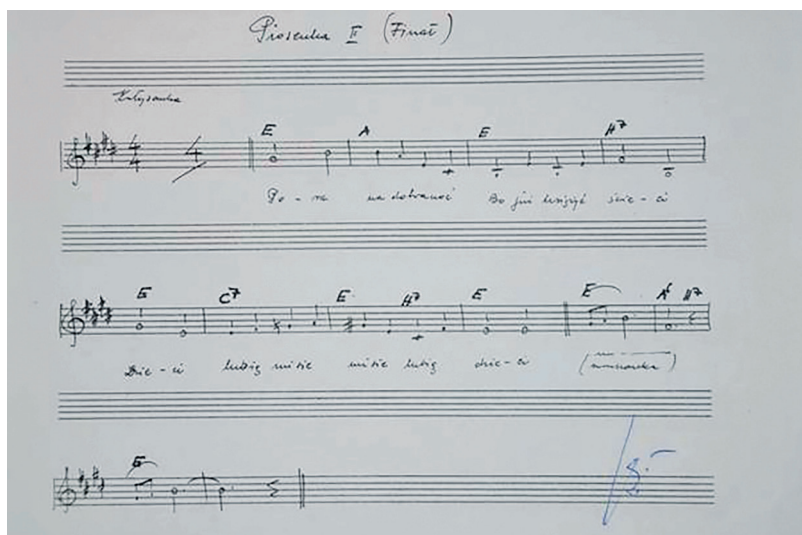 Piosenka II (Finał)
Kołysanka
4/4
E A E H7
Po - ra na dobranoc Bo już księżyc świe - ci
G C7 E H7 E E A6 H7
Dzie - ci lubią misie misie lubią dzie - ci (mruczanka)
G